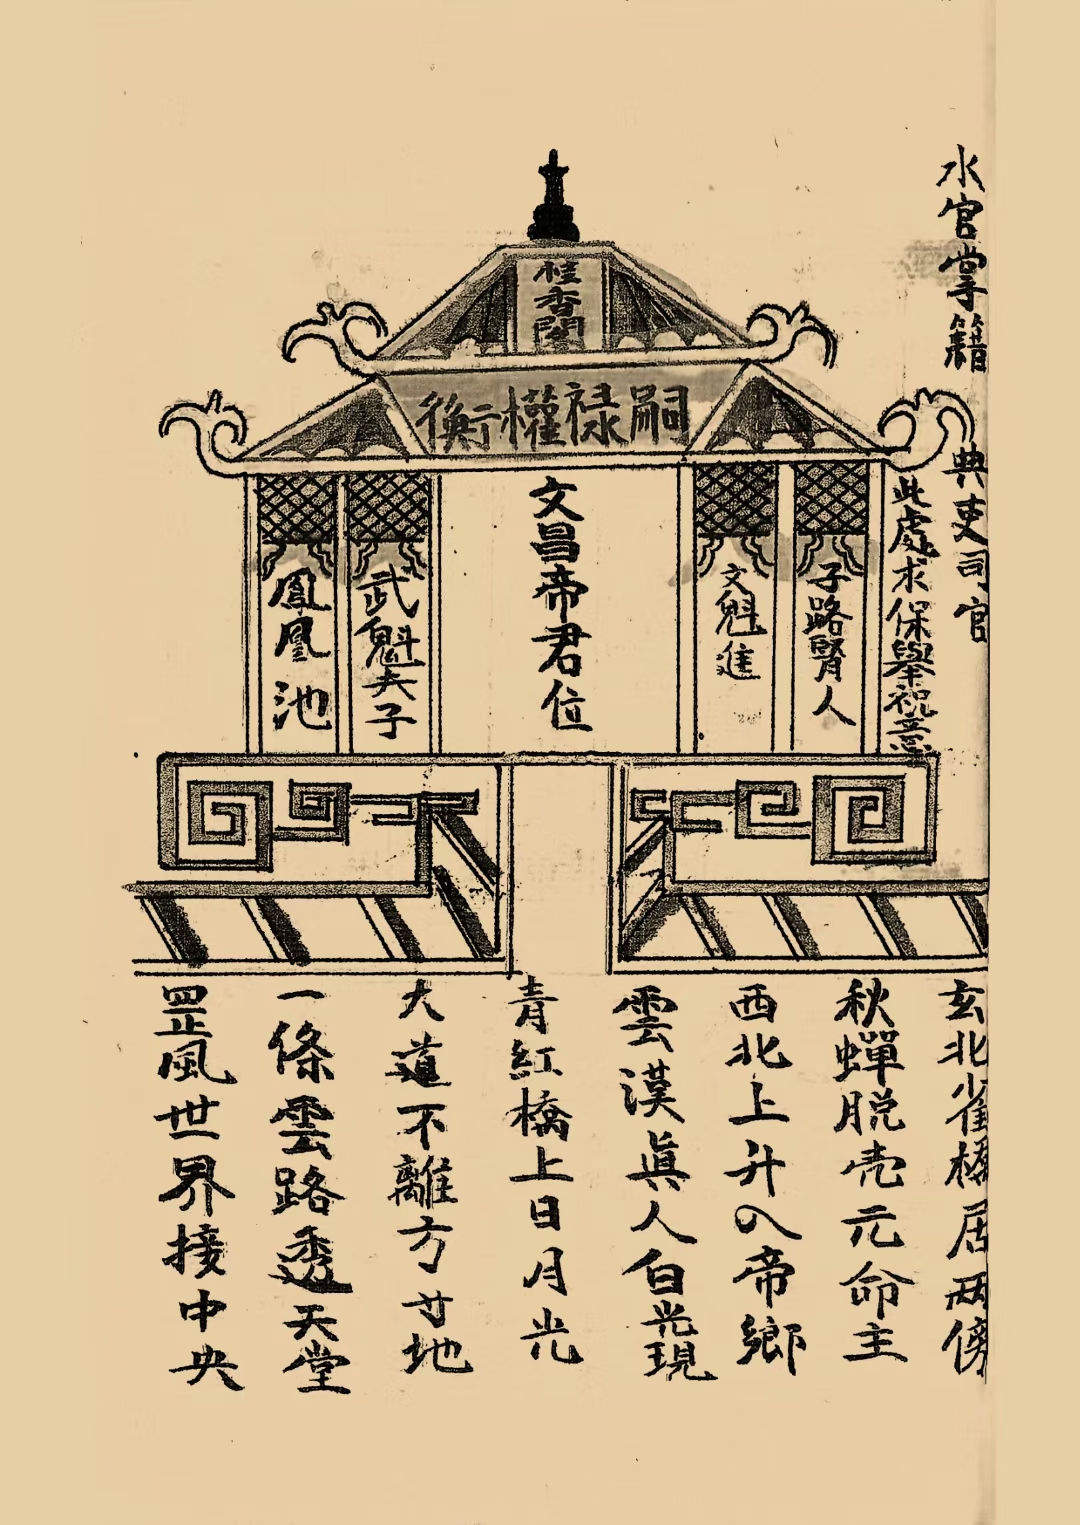 水官掌籍
典吏司官
此處求保舉祝意
桂香閣
嗣禄權衡
子路賢人
文魁進
文昌帝君位
武魁夫子
鳳凰池
玄北雀橋居兩傍
秋蟬脱壳元命主
西北上升入帝鄉
雲漢眞人白光現
青紅橋上日月光
大道不離方寸地
一條雲路透天堂
罡風世界接中央